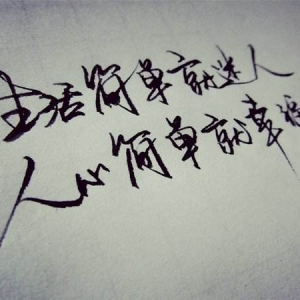 生活简单就迷人
人心简单就幸福